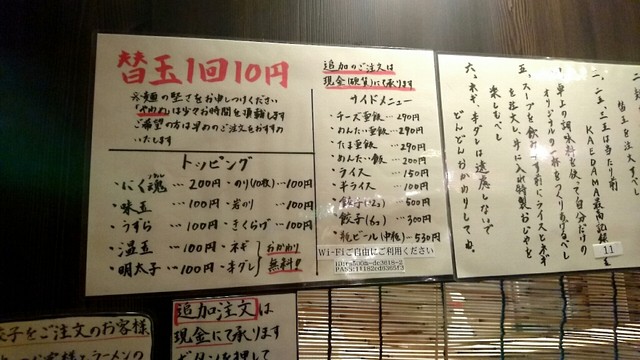 替玉1回10円
※麺の堅さをお申しつけください
「やわめ」は少々お時間を頂戴します
ご希望の方は早めのご注文をおすすめ
いたします
トッピング
・にく魂 … 200円
・のり(10枚) … 100円
・味玉 … 100円
・岩のり … 100円
・うずら … 100円
・きくらげ … 100円
・温玉 … 100円
・ネギ
・明太子 … 100円
・キグレ
おかわり
無料!!
追加のご注文は
現金(硬貨)にて承ります
サイドメニュー
・チーズ重飯 … 290円
・めんたい重飯 … 290円
・たま重飯 … 290円
・めんたい飯 … 200円
・ライス … 150円
・半ライス … 100円
・餃子(12ヶ) … 500円
・餃子(6ヶ) … 300円
・瓶ビール(中瓶) … 530円
Wi-Fiご自由にご利用ください
一、替玉を注文すべし
一、二玉、三玉は当たり前
KAEDAMA最高記録 11 玉
卓上の調味料を使って自分だけの
オリジナルの一杯をつくりあげるべし
五、スープを飲みほす前にライスと玉子
を注文し、牛に入れ特製おじやを
楽しむべし
六、ネギ、キグレは遠慮しないで
どんどんおかわりしてね。
餃子をご注文のお客様
追加注文は
現金にて承ります
ボタンを押して